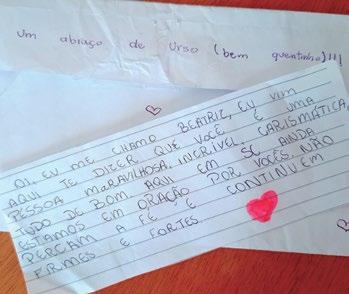 um abraço de urso (bem quentinho)!!!
OI, EU ME CHAMO BEATRIZ, EU VIM
AQUI TE DIZER QUE VOCÊ É UMA
PESSOA MARAVILHOSA, INCRÍVEL, CARISMÁTICA,
TUDO DE BOM. AQUI EM SC AINDA
ESTAMOS EM ORAÇÃO POR VOCÊS, NÃO
PERCAM A FÉ E CONTINUEM
FIRMES E FORTES.